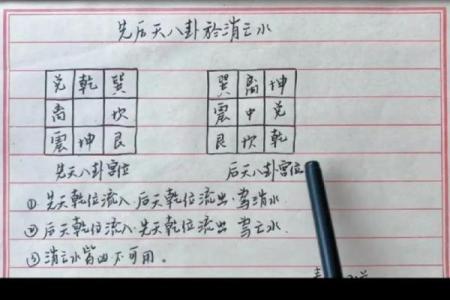 先后天八卦於消亡水
兑 乾 巽 巽 离 坤
离 坎 震 中 兑
震 坤 艮 艮 坎 乾
先天八卦宫位 后天八卦宫位
① 先天乾位流入.后天乾位流出.为消水.
② 后天乾位流入.先天乾位流出 为亡水.
③ 消亡水皆凶不可用。